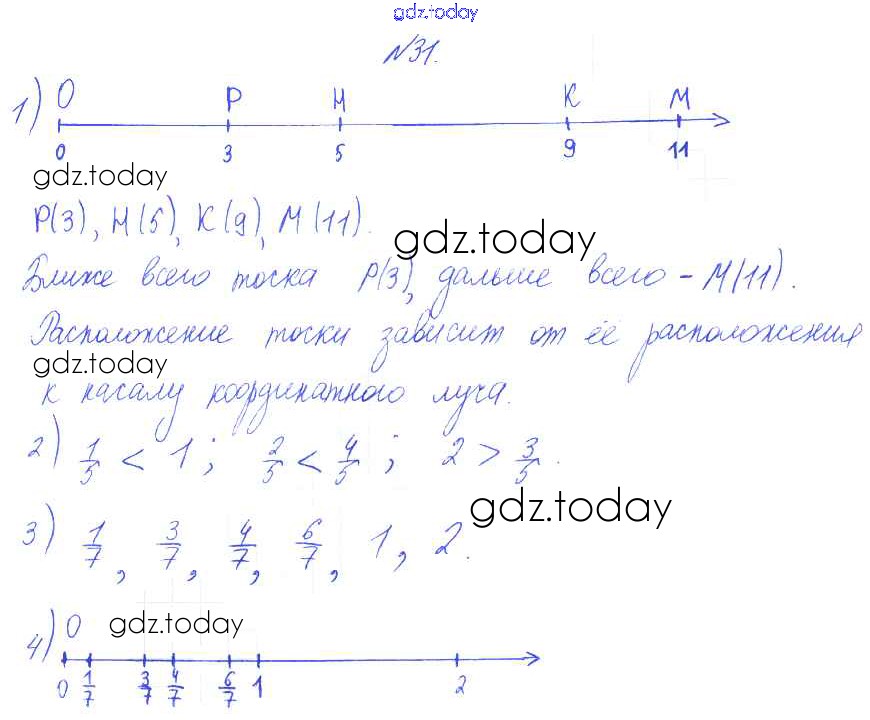 gdz.today
№31.
1) O P H K M
0 3 5 9 11
gdz.today
P(3), H(5), K(9), M(11).
gdz.today
Ближе всего точка P(3), дальше всего - M(11).
Расположение точки зависит от её расположения
gdz.today
к началу координатного луча.
2) 1/5 < 1; 2/5 < 4/5; 2 > 3/5.
gdz.today
3) 1/7, 3/7, 4/7, 6/7, 1, 2.
4) O gdz.today
0 1/7 3/7 4/7 6/7 1 2